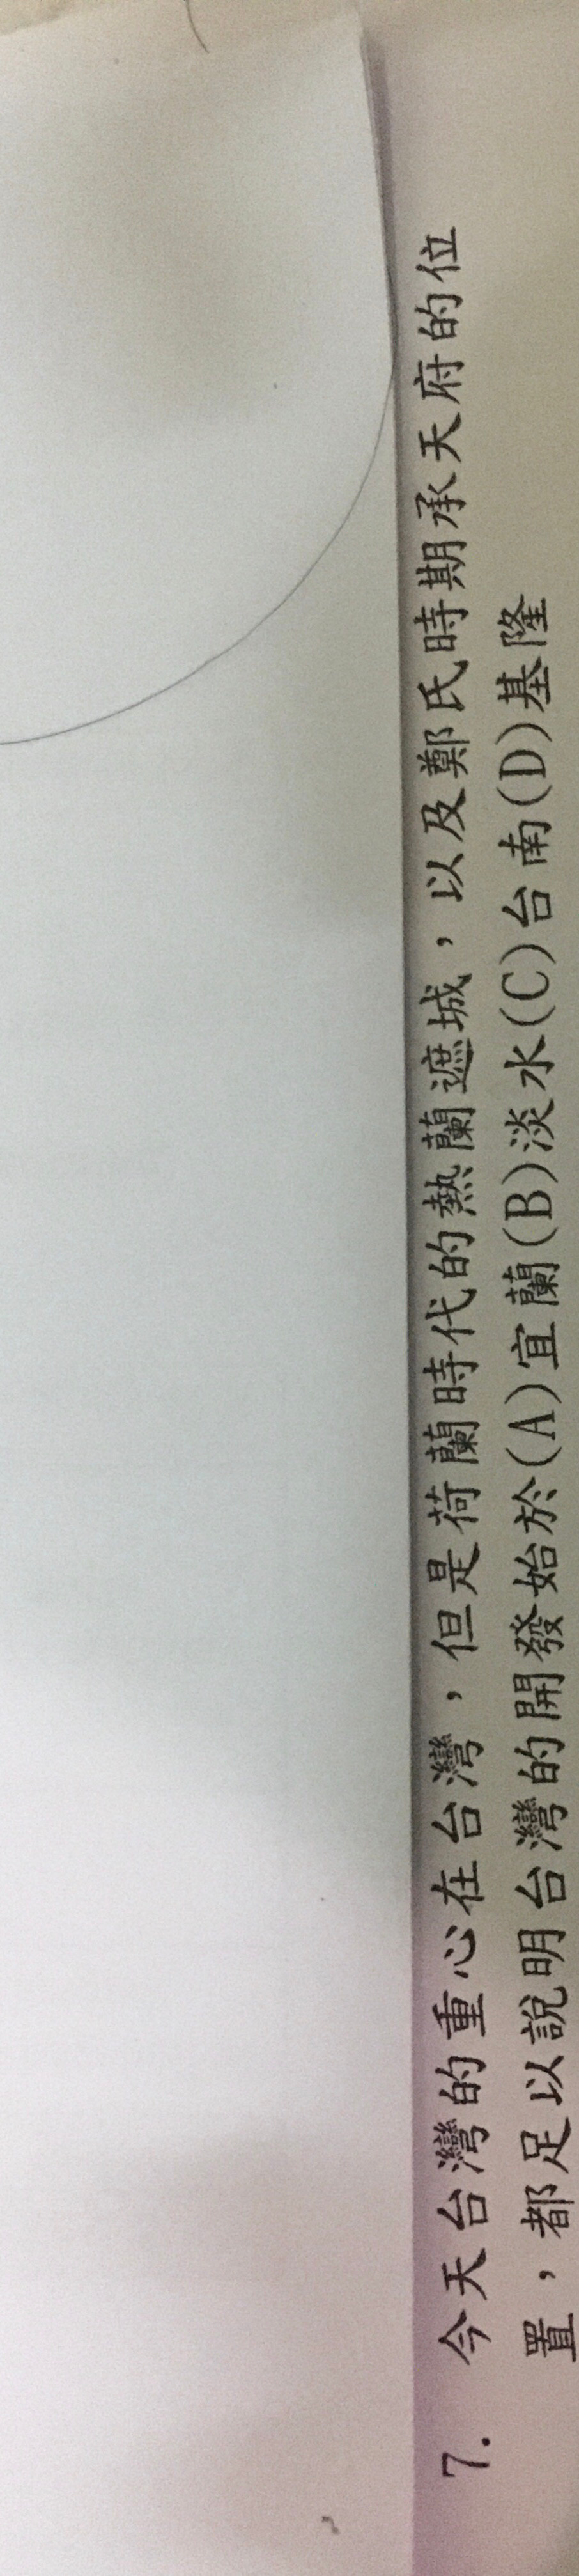 7. 今天台灣的重心在台灣，但是荷蘭時代的熱蘭遮城，以及鄭氏時期承天府的位
置，都足以說明台灣的開發始於(A)宜蘭(B)淡水(C)台南(D)基隆